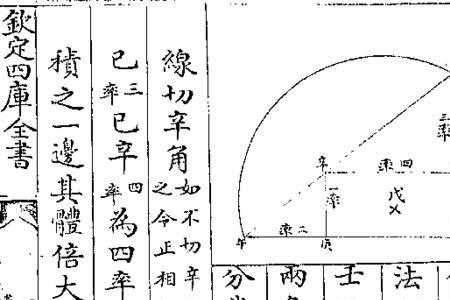 三率
四率
辛
一率
戊
二率
午
庚
法
壬
兩
分
線切辛角如不切辛之令正相
己三率己辛四率為四率
積之一邊其體倍大
欽定四庫全書